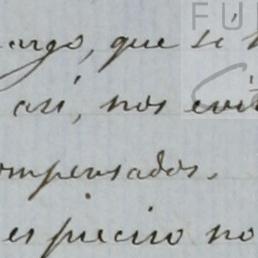 FU
argo, que si
así, nos evit
ompensados.
es preciso no